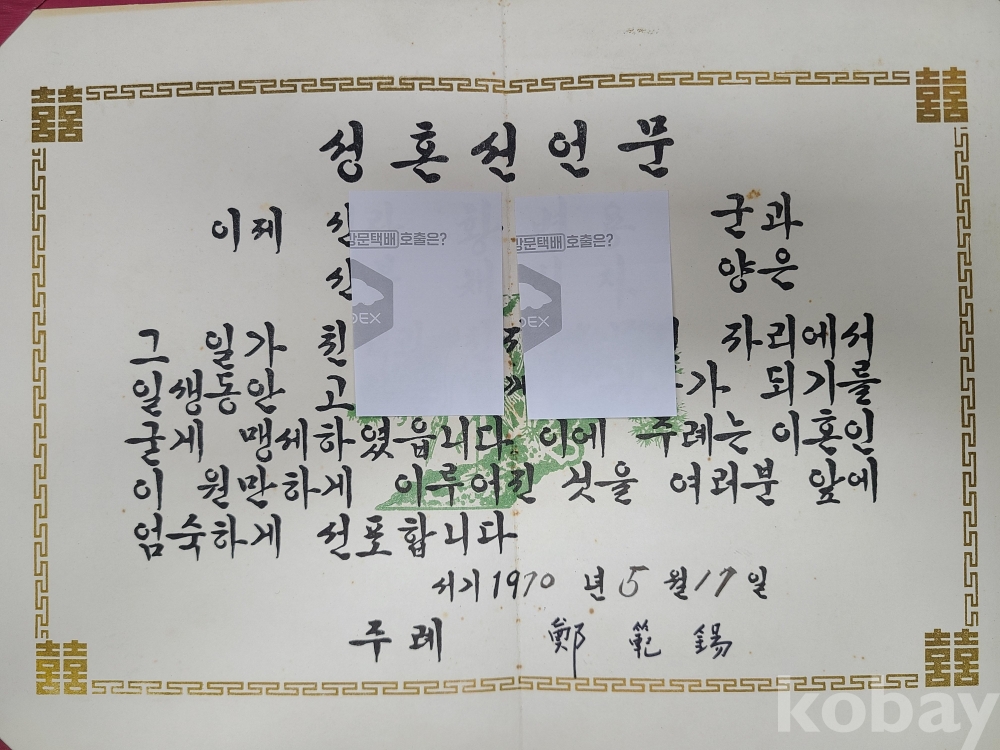 성혼선언문
이제 신 군과
방문택배 호출은? 방문택배 호출은?
신 양은
그 일가 친 자리에서
일생동안 고 가 되기를
굳게 맹세하였읍니다 이에 주례는 이혼인
이 원만하게 이루여진 것을 여러분 앞에
엄숙하게 선포합니다
서기 1970 년 5 월 17 일
주례 鄭範錫
kobay